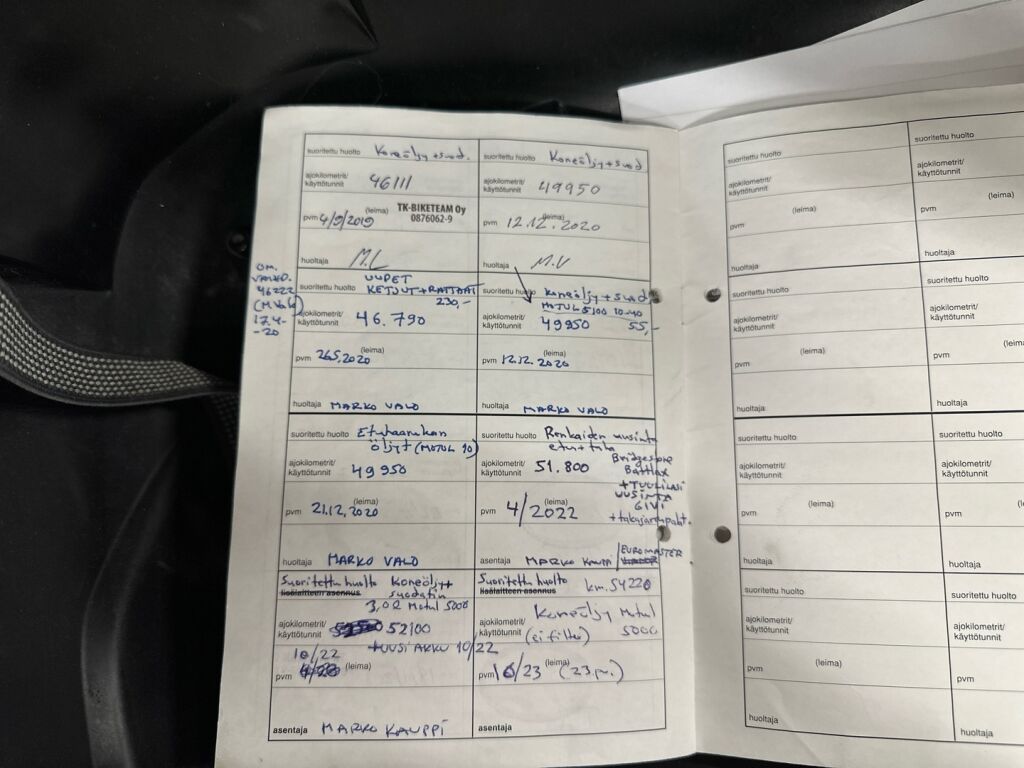 suoritettu huolto Koneöljy + suod.
ajokilometrit/
käyttötunnit 46111
pvm 4/9/2019 (leima) TK-BIKETEAM Oy
0876062-9
huoltaja M.L
suoritettu huolto Koneöljy + suod
ajokilometrit/
käyttötunnit 49950
pvm 12.12.2020 (leima)
huoltaja M.V
46222
17.4-
-20
suoritettu huolto UUDET
KETJUT + RATTAAT
230,-
ajokilometrit/
käyttötunnit 46.790
pvm 26.5.2020 (leima)
huoltaja MARKO VALO
suoritettu huolto Koneöljy + suod
MOTUL 5100 10-40
ajokilometrit/
käyttötunnit 49950 55,-
pvm 12.12.2020 (leima)
huoltaja MARKO VALO
suoritettu huolto Etuhaarukan
öljyt (MOTUL 10)
ajokilometrit/
käyttötunnit 49950
pvm 21.12.2020 (leima)
huoltaja MARKO VALO
suoritettu huolto Renkaiden uusinta
etu + taka
Bridgestone
Battlax
ajokilometrit/
käyttötunnit 51.800
+ TUULILASI
UUSINTA
GIVI
+ takajarrupalat.
pvm 4/2022 (leima)
asentaja MARKO KAUPPI / EUROMASTER
Suoritettu huolto Koneöljy +
lisälaitteen asennus suodatin
3,0 l Motul 5000
ajokilometrit/
käyttötunnit 52100
+ UUSI AKKU 10/22
10/22
pvm (leima)
asentaja MARKO KAUPPI
Suoritettu huolto km. 54220
lisälaitteen asennus
Koneöljy Motul
5000
ajokilometrit/
käyttötunnit (ei filtter)
pvm 10/23 (leima)
asentaja
suoritettu huolto
ajokilometrit/
käyttötunnit
pvm (leima)
huoltaja
suoritettu huolto
ajokilometrit/
käyttötunnit
pvm (leima)
huoltaja
suoritettu huolto
ajokilometrit/
käyttötunnit
pvm (leima)
huoltaja
suoritettu huolto
ajokilometrit/
käyttötunnit
pvm (leima)
huoltaja
suoritettu huolto
ajokilometrit/
käyttötunnit
pvm (leima)
huoltaja
suoritettu huolto
ajokilometrit/
käyttötunnit
pvm
huoltaja
suoritettu huolto
ajokilometrit/
käyttötunnit
pvm (leima)
huoltaja
suoritettu huolto
ajokilometrit/
käyttötunnit
pvm
huoltaja